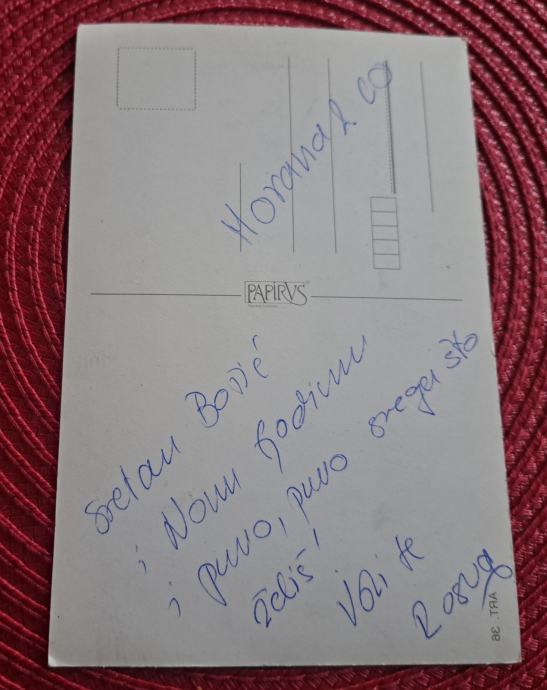 Morana & co
PAPIRVS
Sretan Božić
i Novu Godinu
i puno, puno svega što
želiš!
Voli te
ART. 36